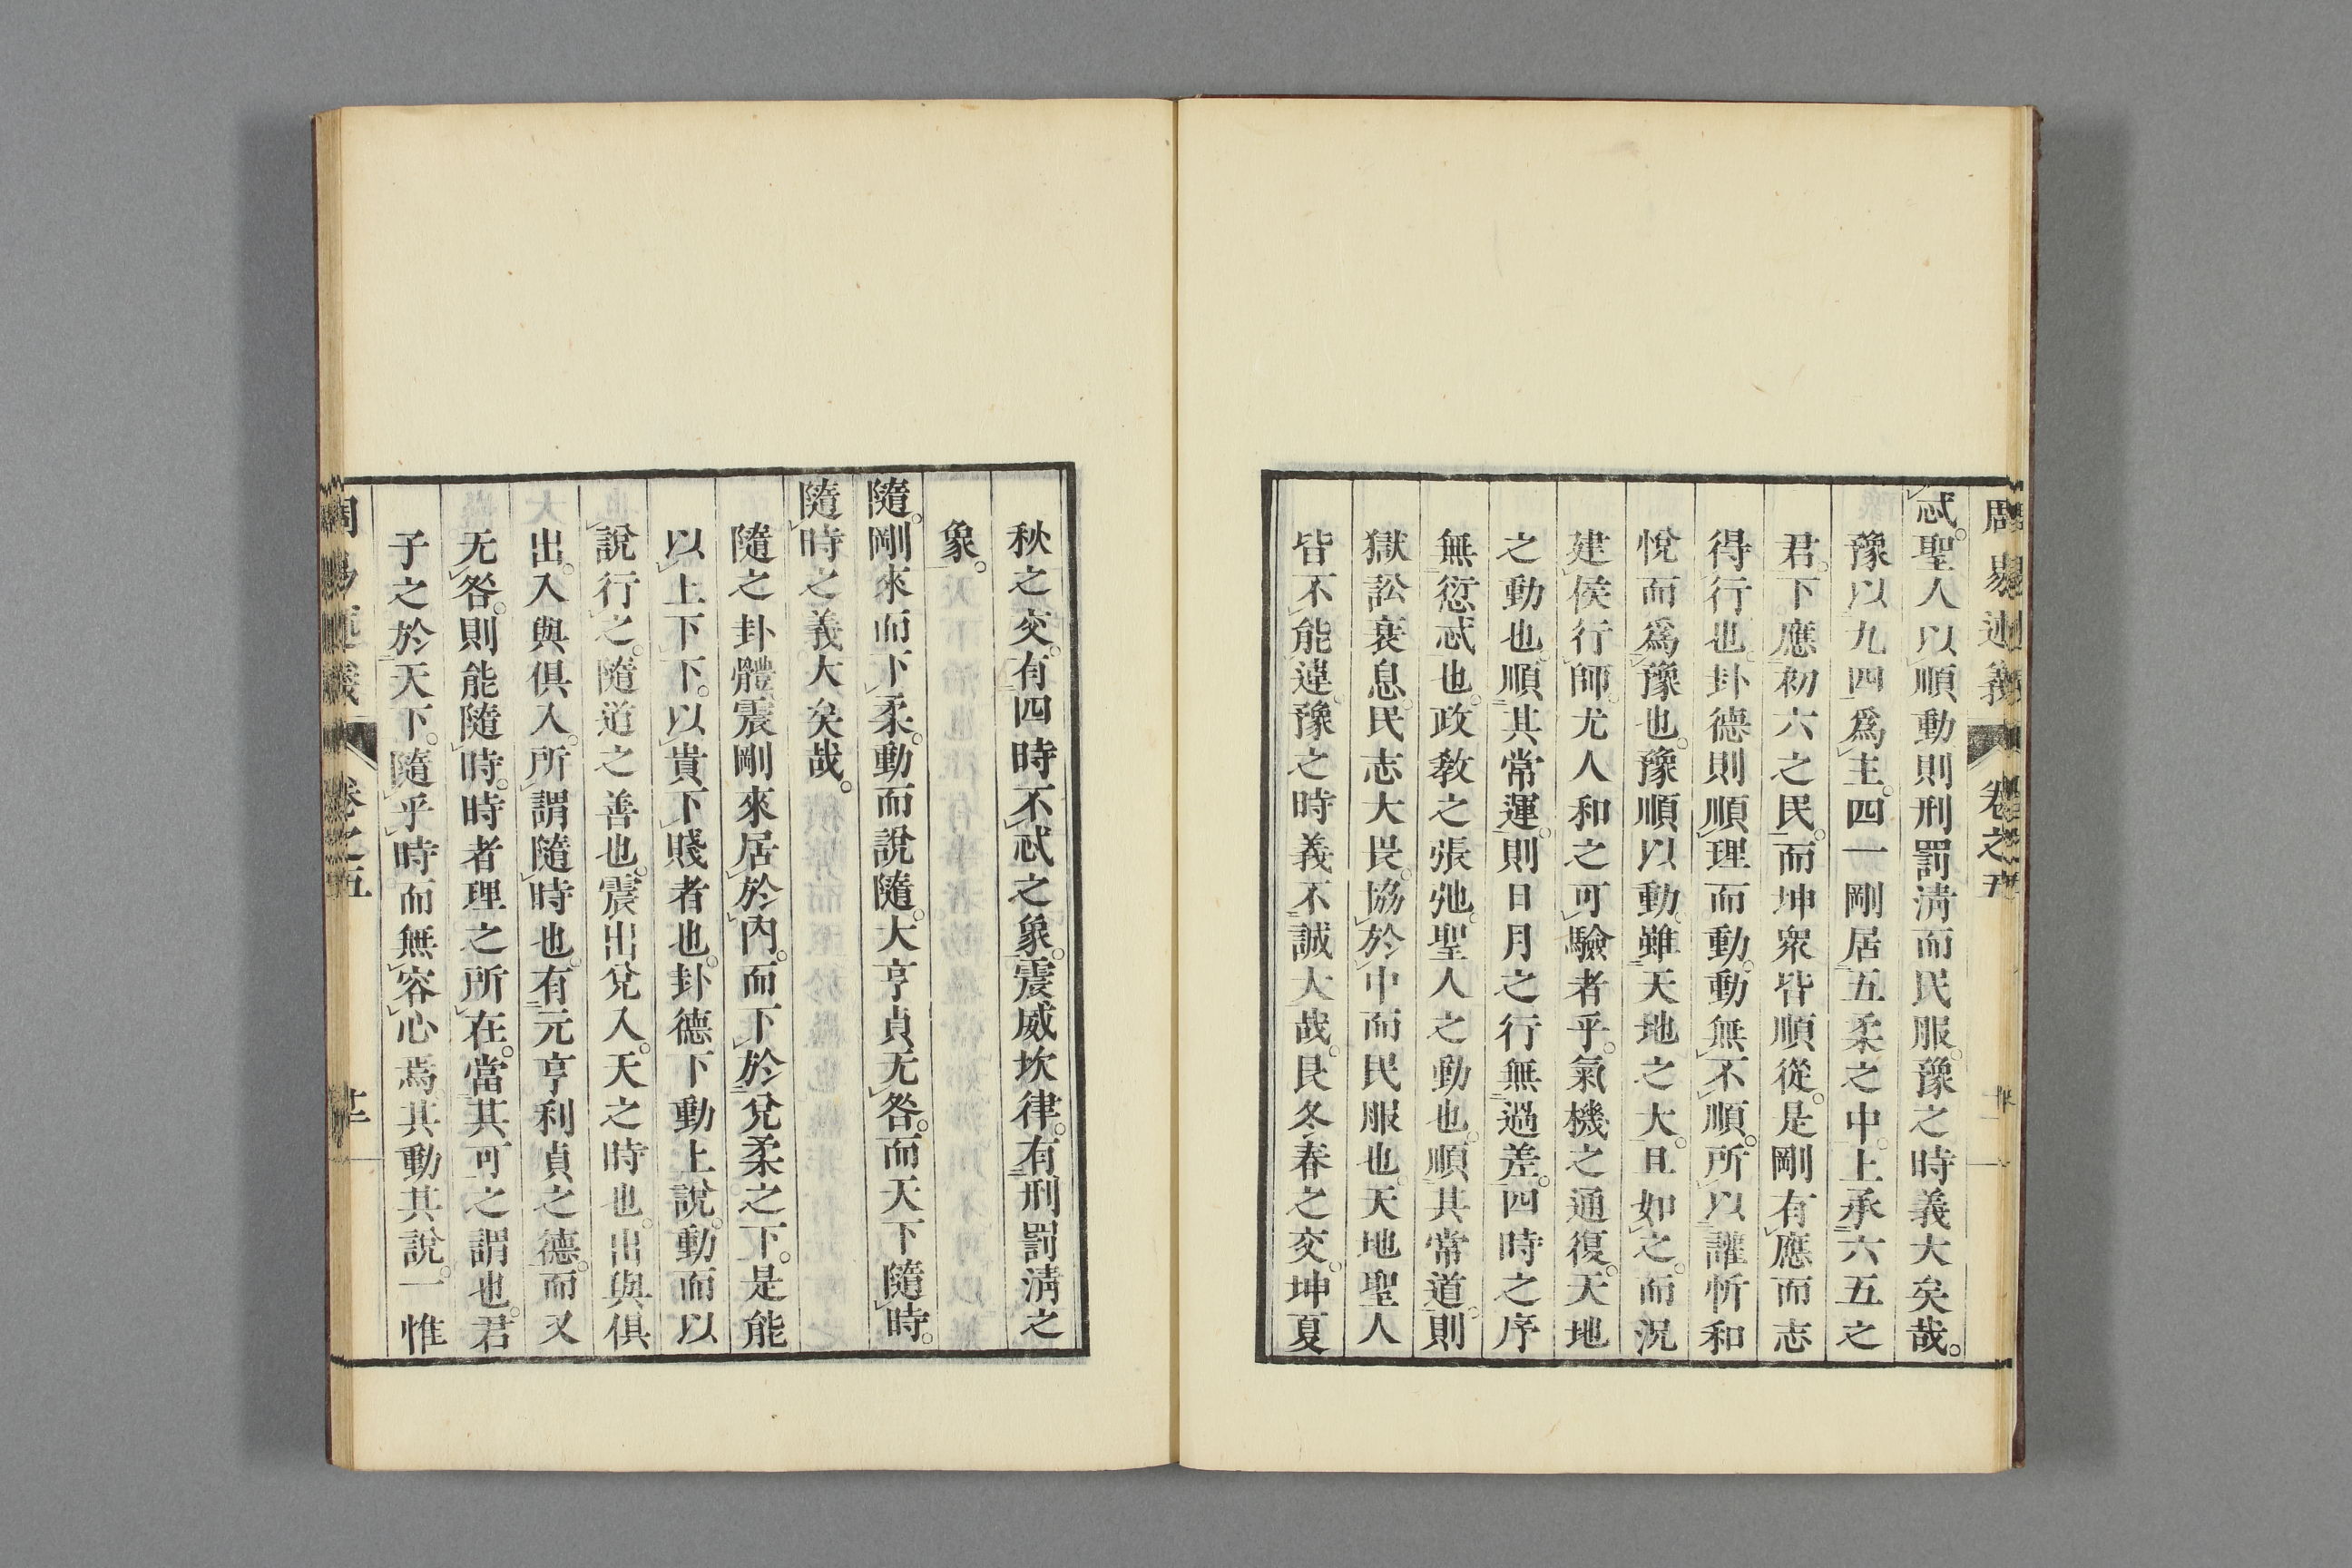 周易述義 卷之五
忒。聖人以順動則刑罰淸而民服。豫之時義大矣哉。
豫以九四爲主。四一剛居五柔之中。上承六五之
君。下應初六之民。而坤衆皆順從。是剛有應而志
得行也。卦德則順理而動。動無不順。所以讙忻和
悅而爲豫也。豫順以動。雖天地之大。且如之。而況
建侯行師。尤人和之可驗者乎。氣機之通復。天地
之動也。順其常運。則日月之行無過差。四時之序
無愆忒也。政敎之張弛。聖人之動也。順其常道。則
獄訟衰息。民志大畏。協於中而民服也。天地聖人
皆不能違。豫之時義不誠大哉。艮冬春之交。坤夏
秋之交。有四時不忒之象。震威坎律。有刑罰淸之
象。
隨。剛來而下柔。動而說隨。大亨貞无咎。而天下隨時。
隨時之義大矣哉。
隨之卦體震剛來居於內。而下於兌柔之下。是能
以上下下。以貴下賤者也。卦德下動上說。動而以
說行之。隨道之善也。震出兌入。天之時也。出與俱
出。入與俱入。所謂隨時也。有元亨利貞之德。而又
无咎。則能隨時。時者理之所在。當其可之謂也。君
子之於天下。隨乎時而無容心焉。其動其說。一惟
周易述義 卷之五